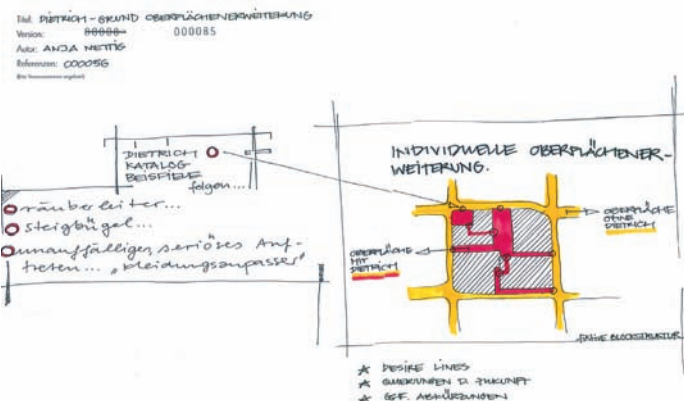 Titel: DIETRICH-GRUND OBERFLÄCHENERWEITERUNG
Version: 000085
Autor: ANJA NETTIG
Referenzen: 000056
DIETRICH
KATALOG
BEISPIELE
folgen...
räuberleiter...
steigbügel...
unauffälliges, seriöses Auf-
treten... „kleidungsanpasser"
INDIVIDUELLE OBERFLÄCHENER-
WEITERUNG.
OBERFLÄCHE
OHNE
DIETRICH
OBERFLÄCHE
MIT
DIETRICH
BLOCKSTRUKTUR
DESIRE LINES
QUERUNGEN D. ZUKUNFT
GGF. ABKÜRZUNGEN